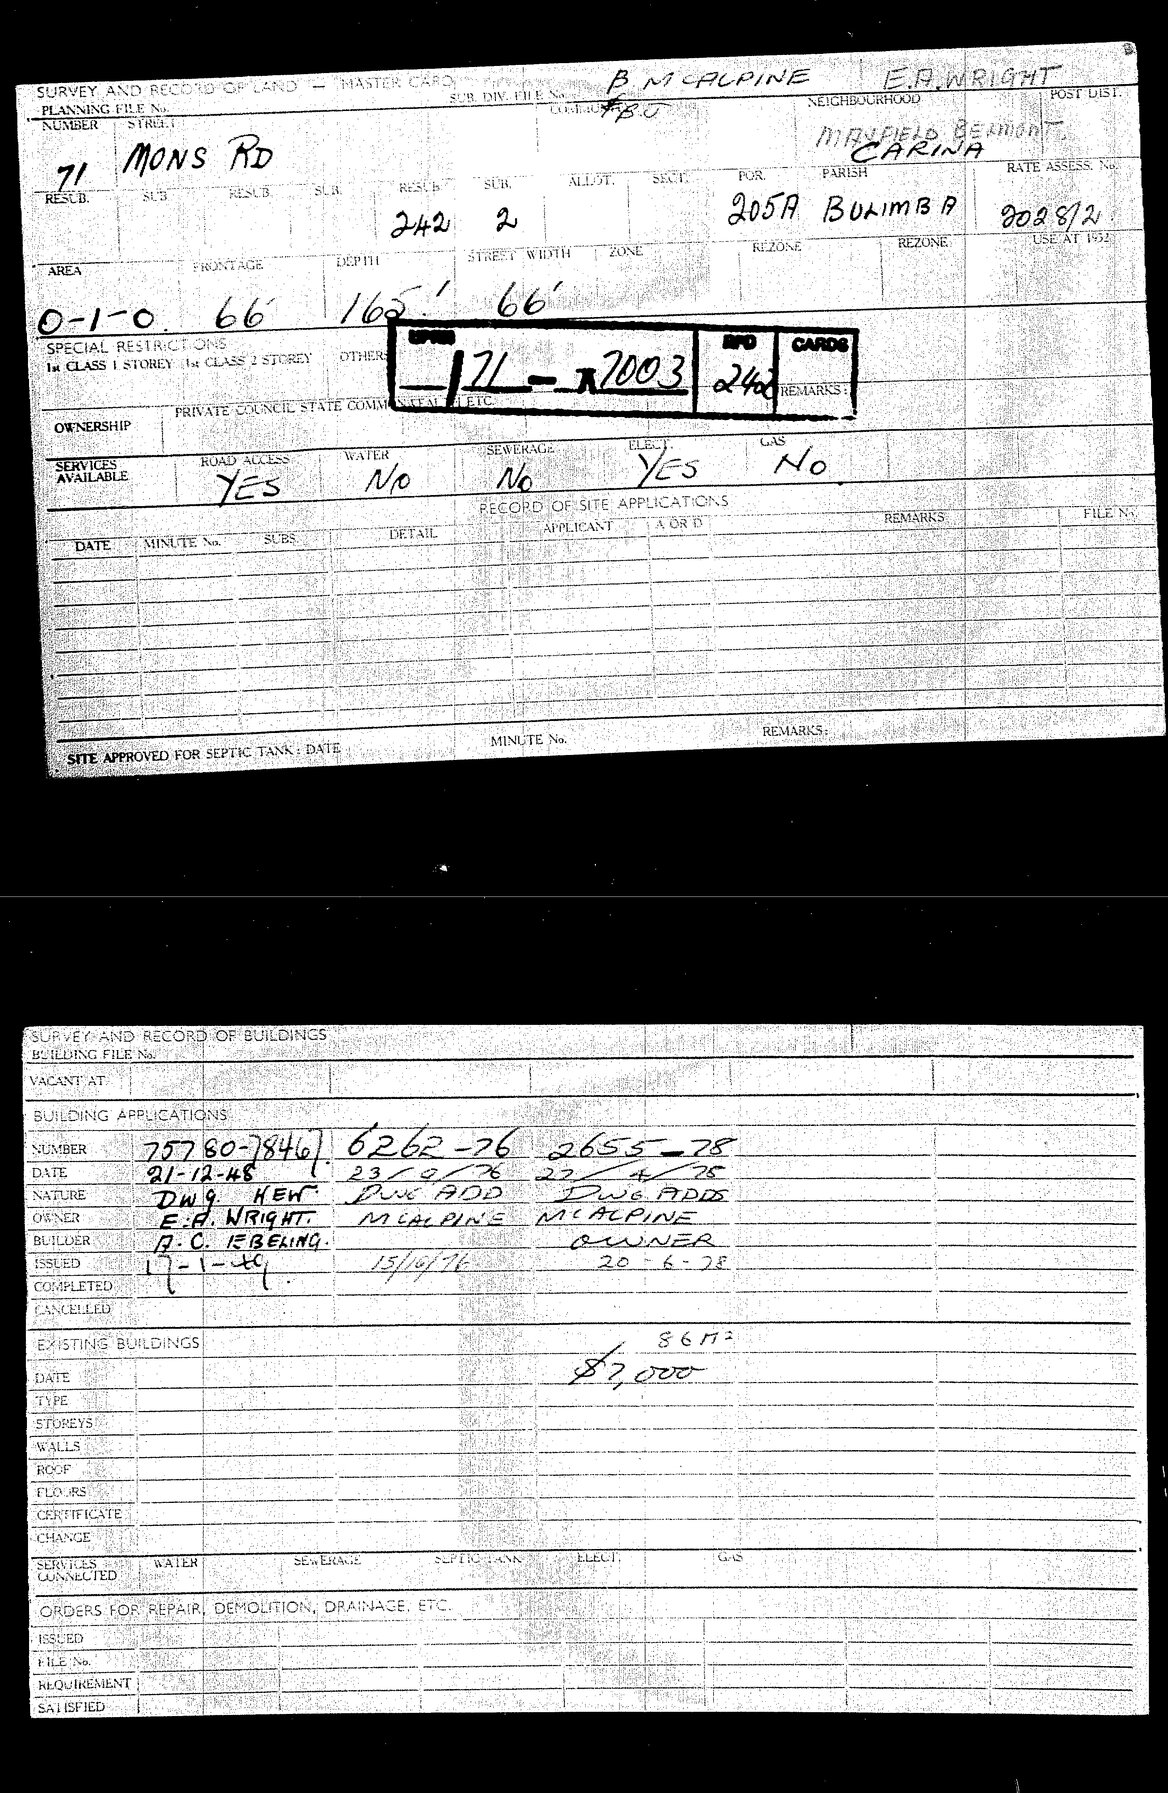 B MCALPINE E.A. WRIGHT
SURVEY AND RECORD OF LAND — MASTER CARD
PLANNING FILE No. SUB. DIV. FILE No. NEIGHBOURHOOD POST DIST.
NUMBER STREET
MAYFIELD BELMONT.
71 MONS RD CARINA
RESUB. SUB. RESUB. SUB. RESUB. SUB. ALLOT. SECT. POR. PARISH RATE ASSESS. No.
242 2 205A BULIMBA 2028/2
AREA FRONTAGE DEPTH STREET WIDTH ZONE REZONE REZONE USE AT 1952
0-1-0. 66' 165' 66'
SPECIAL RESTRICTIONS
1st CLASS 1 STOREY 1st CLASS 2 STOREY OTHERS
RPD CARDS
/71 - 7003 242 REMARKS:
OWNERSHIP PRIVATE COUNCIL STATE ETC.
SERVICES AVAILABLE ROAD ACCESS WATER SEWERAGE ELECT. GAS
YES NO NO YES NO
RECORD OF SITE APPLICATIONS
DATE MINUTE No. SUBS. DETAIL APPLICANT A OR D REMARKS FILE No.
SITE APPROVED FOR SEPTIC TANK: DATE MINUTE No. REMARKS:
SURVEY AND RECORD OF BUILDINGS
BUILDING FILE No.
VACANT AT
BUILDING APPLICATIONS
NUMBER 75780-78467. 6262-76 2655-78
DATE 21-12-48 23/9/76 27/4/78
NATURE DWG NEW. DWG ADD DWG ADDS
OWNER E.A. WRIGHT. MCALPINE MCALPINE
BUILDER A.C. EBELING. OWNER
ISSUED 17-1-49 15/10/76 20-6-78
COMPLETED
CANCELLED
EXISTING BUILDINGS 86 M2
DATE $7,000
TYPE
STOREYS
WALLS
ROOF
FLOORS
CERTIFICATE
CHANGE
SERVICES CONNECTED WATER SEWERAGE SEPTIC TANK ELECT. GAS
ORDERS FOR REPAIR, DEMOLITION, DRAINAGE, ETC.
ISSUED
FILE No.
REQUIREMENT
SATISFIED